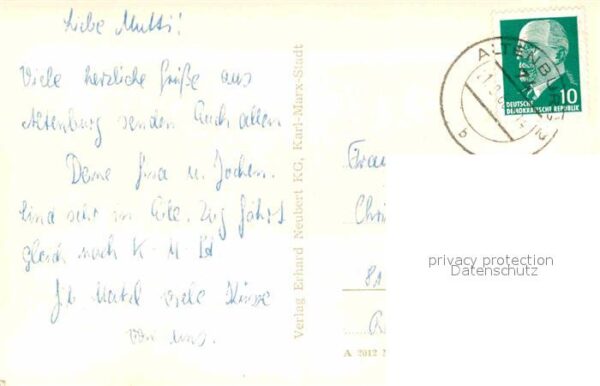 Liebe Mutti!
Viele herzliche Grüße aus
Altenburg senden Euch allen
Deine u. Jochen.
Sind sehr in Eile. Zug fährt
gleich nach K-M-St
viele Küsse
von uns.
Verlag Erhard Neubert KG, Karl-Marx-Stadt
ALTENBURG
DEUTSCHE
DEMOKRATISCHE REPUBLIK
10
b
Frau
Chri
privacy protection
Datenschutz
A 2012